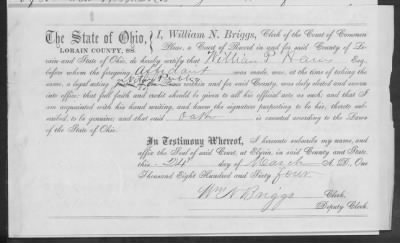 The State of Ohio,
LORAIN COUNTY, SS.
I, William N. Briggs, Clerk of the Court of Common
Pleas, a Court of Record in and for said County of Lo-
rain and State of Ohio, do hereby certify that William P. Esq.
before whom the foregoing affidavit was made, was, at the time of taking the
same, a legal acting within and for said County, was duly elected and
cate office: that full faith and credit should be given to all his official acts as such, and that I
am acquainted with his hand writing, and know the signature purporting to be his, thereto sub-
scribed, to be genuine; and that said oath is executed according to the Laws
of the State of Ohio.
In Testimony Whereof, I hereunto subscribe my name, and
affix the Seal of said Court, at Elyria, in said County and State,
this 24" day of March A. D., One
Thousand Eight Hundred and Sixty four.
Wm N Briggs Clerk.
Deputy Clerk.